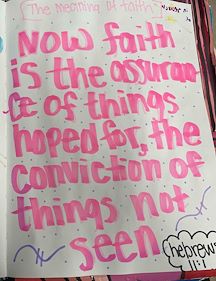 [The meaning of faith]
NOW faith
is the assuran-
ce of things
hoped for, the
conviction of
things not
seen
hebrews
11:1